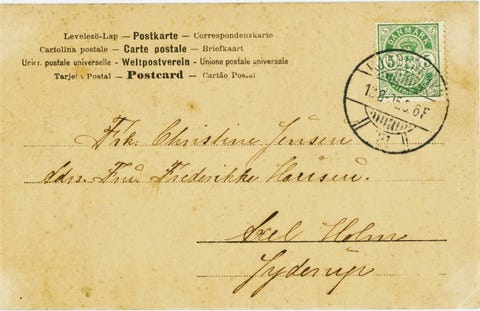 Levelező-Lap — Postkarte — Correspondenzkarte
Cartolina postale — Carte postale — Briefkaart
Union postale universelle — Weltpostverein — Unione postale universale
Tarjeta Postal — Postcard — Cartão Postal
DANMARK
5 5
Frk. Christine Jensen
Adrs. Fru Frederikke Hansen.
Axel Holm
Jyderup